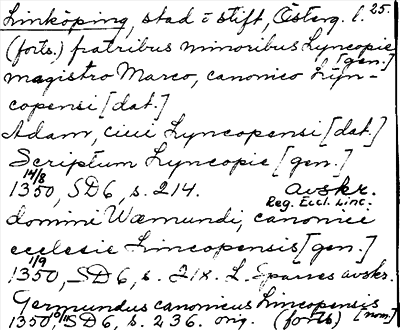 Linköping, stad o stift, Österg. l. 25.
(forts.) fratribus minoribus Lyncopie [gen.]
magistro Marco, canonico Lyn-
copensi [dat.]
Adam, ciui Lyncopensi [dat.]
Scriptum Lyncopie [gen.]
14/8 1350, SD6, s. 214. avskr. Reg. Eccl. Linc.
domini Wæmundi, canonici
ecclesie Lincopensis [gen.]
1/9 1350, SD6, s. 21x. L. Sparres avskr.
Germundus canonicus Lincopensis [nom.]
1350, SD6, s. 236. orig. (forts)